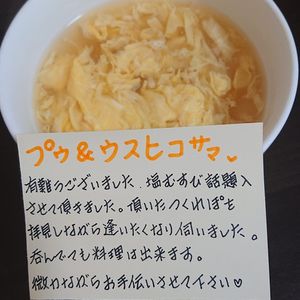 プゥ&ウスヒコサマ
有難うございました、塩むすび話題入
させて頂きました。頂いたつくれぽを
拝見しながら逢いたくなり伺いました。
呑んでても料理は出来ます。
微力ながらお手伝いさせて下さい♡